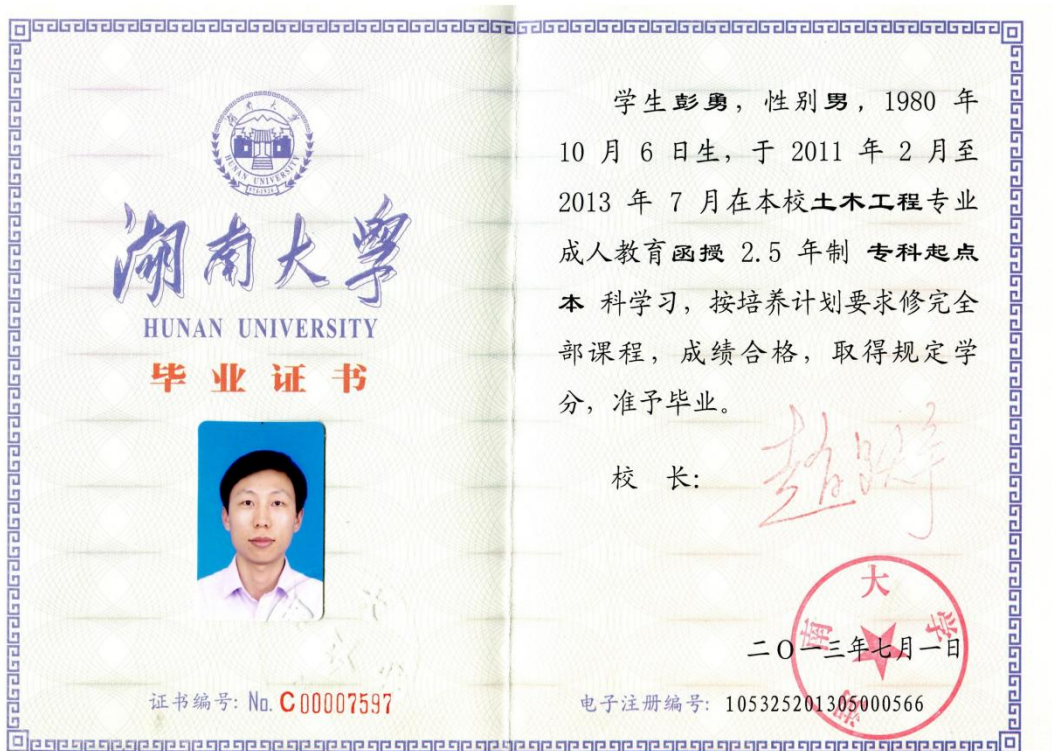 湖南大学
HUNAN UNIVERSITY
湖南大学
HUNAN UNIVERSITY
毕业证书
证书编号: No. C00007597
学生彭勇，性别男，1980 年
10 月 6 日生，于 2011 年 2 月至
2013 年 7 月在本校土木工程专业
成人教育函授 2.5 年制 专科起点
本 科学习，按培养计划要求修完全
部课程，成绩合格，取得规定学
分，准予毕业。
校 长:
湖南大学
二O一三年七月一日
电子注册编号: 105325201305000566